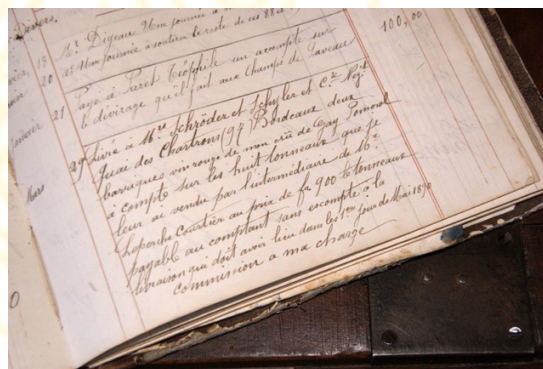 Divers
18 Mr Digeau 2 1/2 journée à
20 et 11 journées à soutirer le reste de ces 88
21 Payé à Paret Théophile un accompte sur 100,00
le devirage qu'il fait aux Champs de Laveau
29 Livré à Mrs Schröder et Schyler et Cie Negts
Quai des Chartrons (97) Bordeaux deux
barriques vin rouge de mon crû de Gay Pomerol
à compte sur les huit tonneaux que je
leur ai vendu par l'intermédiaire de Mr
Laporche Courtier au prix de fr 900 le tonneaux
payable au comptant sans escompte à la
livraison qui doit avoir lieu dans les 1ers jours de Mai 1890
commission a ma charge
Mars